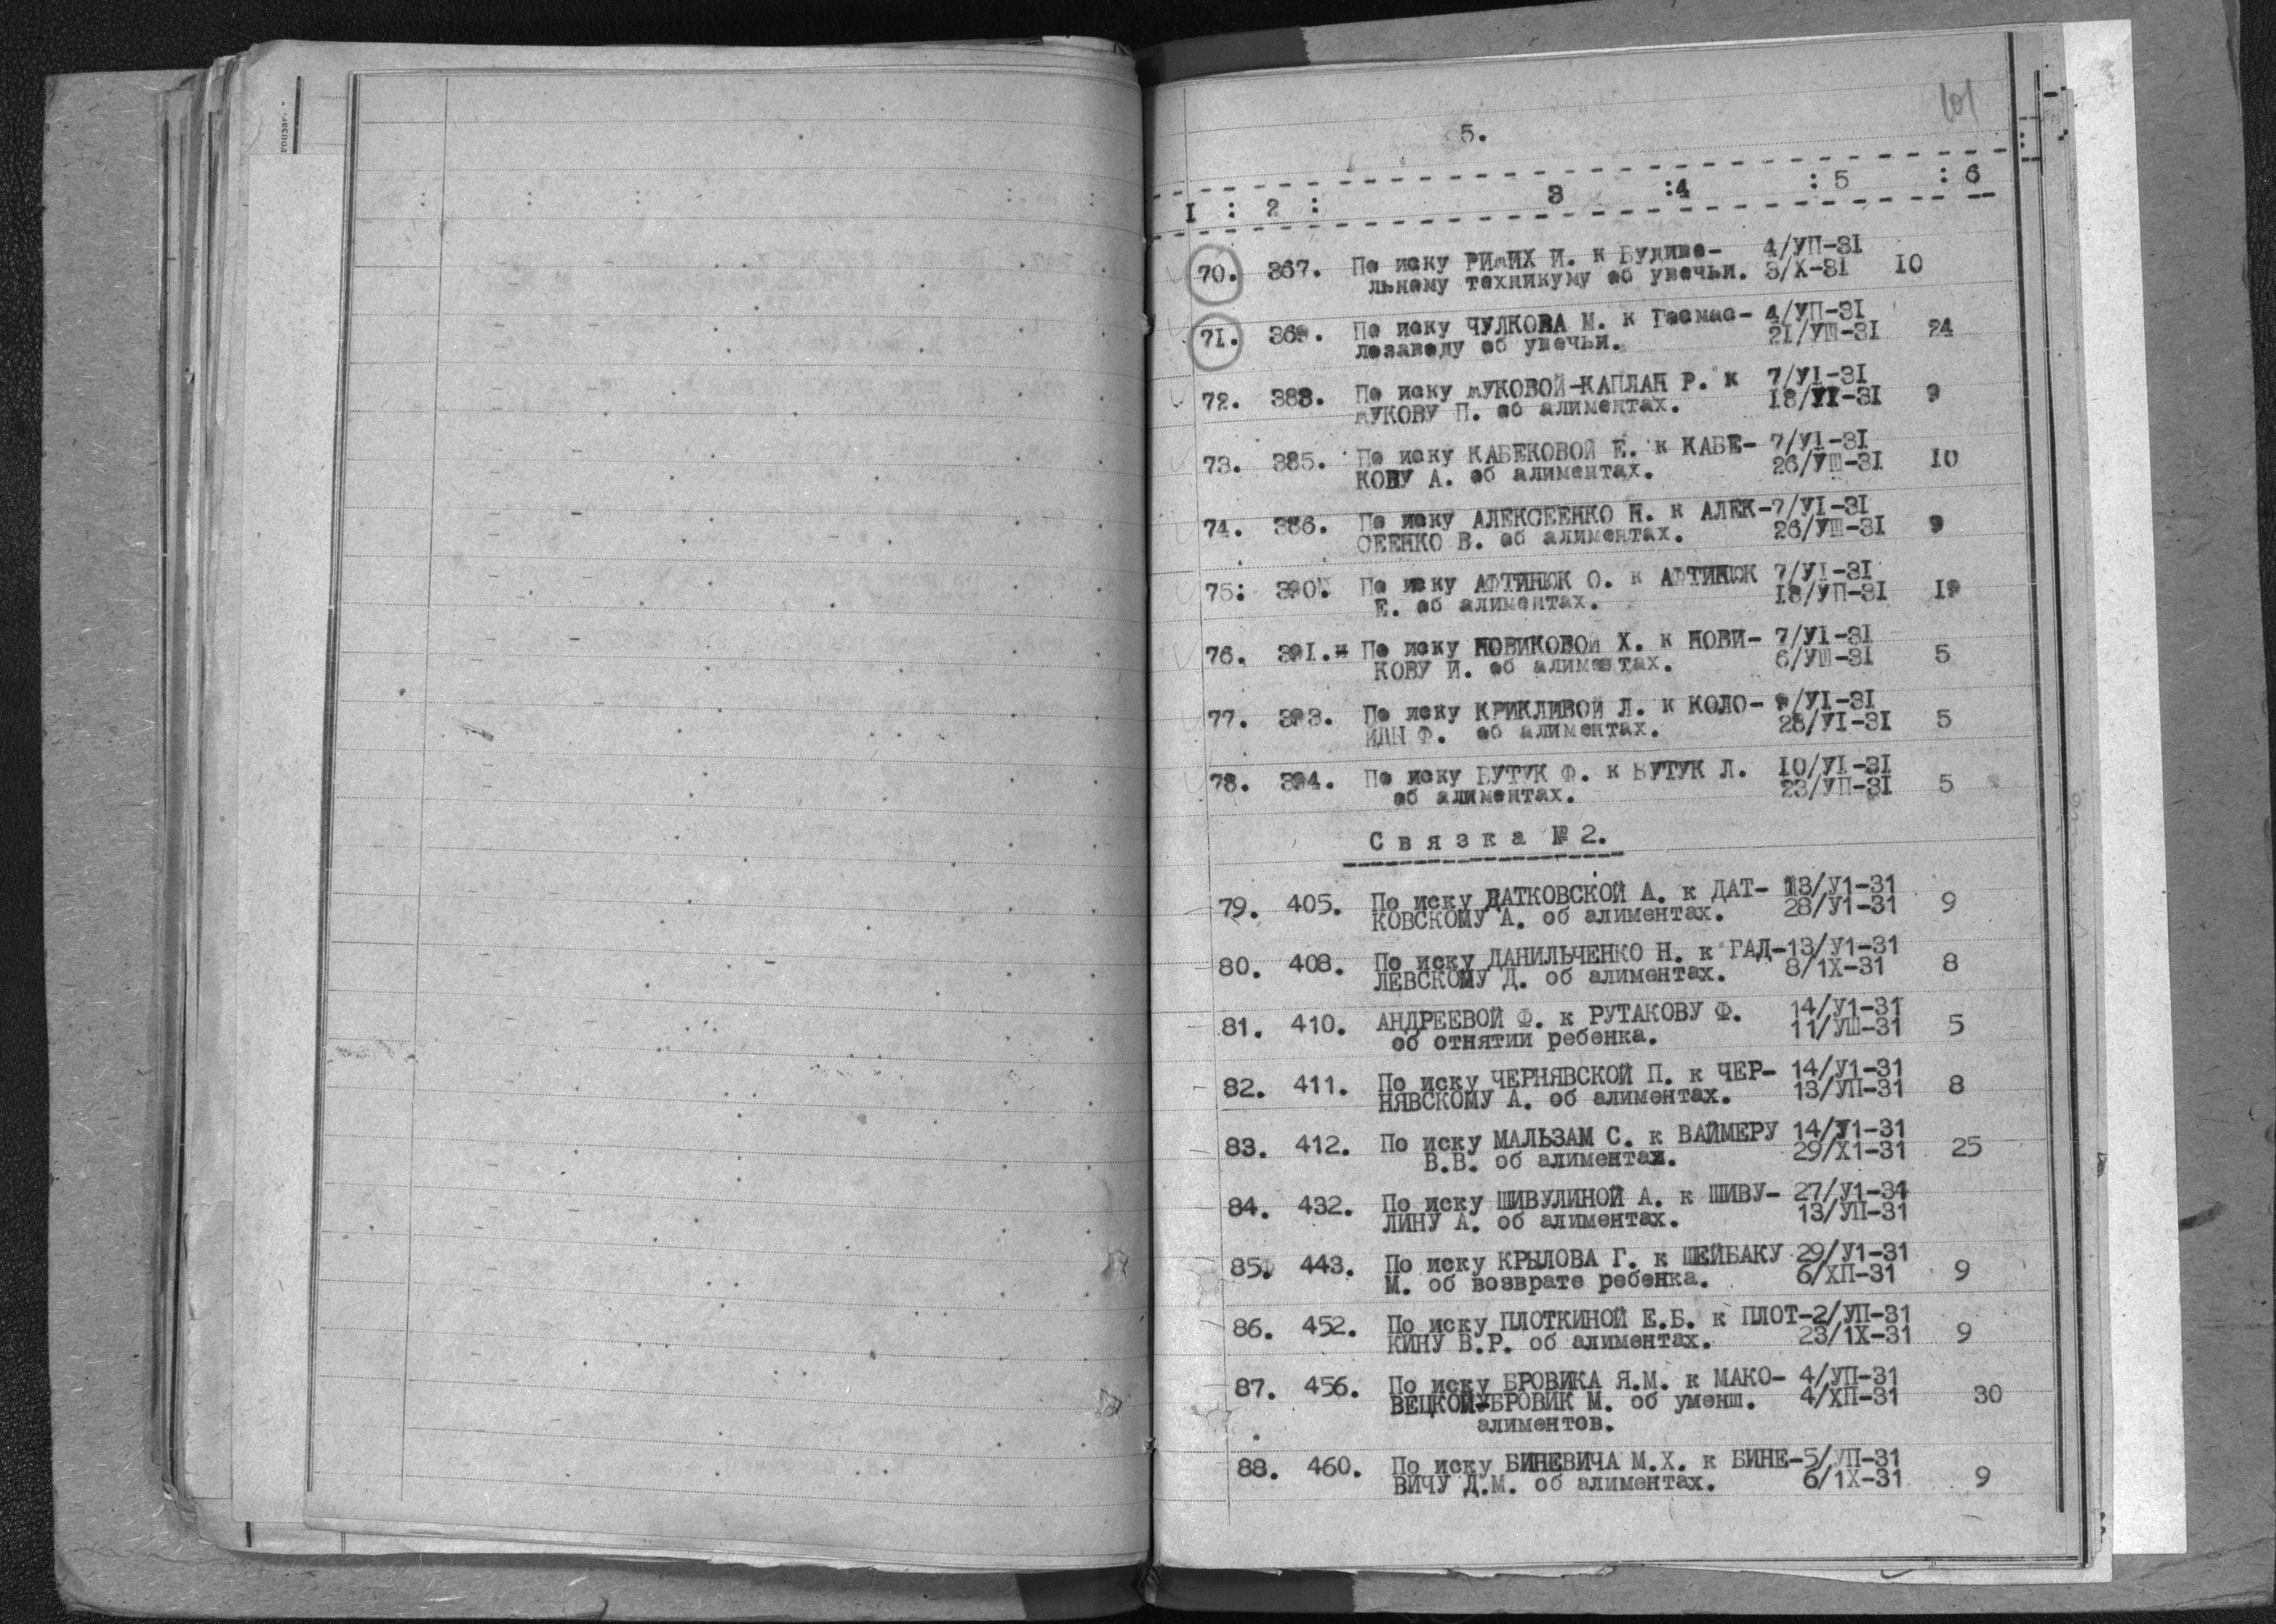 101
5.
1 : 2 : 3 :4 : 5 : 6
70. 367. По иску И. к Будиве- 4/УП-31
льному техникуму об увечьи. 3/Х-31 10
71. 369. По иску ЧУЛКОВА М. к Госмас- 4/УП-31
лозаводу об увечьи. 21/УШ-31 24
72. 383. По иску ЖУКОВОЙ-КАПЛАН Р. к 7/У1-31
ЖУКОВУ П. об алиментах. 18/У1-31 9
73. 385. По иску КАБЕКОВОЙ Е. к КАБЕ- 7/У1-31
КОВУ А. об алиментах. 26/УШ-31 10
74. 386. По иску АЛЕКСЕЕНКО Н. к АЛЕК- 7/У1-31
СЕЕНКО В. об алиментах. 26/УШ-31 9
75. 390. По иску АФТИНЮК О. к АФТИНЮК 7/У1-31
Е. об алиментах. 18/УП-31 19
76. 391. По иску НОВИКОВОЙ Х. к НОВИ- 7/У1-31
КОВУ И. об алиментах. 6/УШ-31 5
77. 393. По иску КРИКЛИВОЙ Л. к КОЛО- 9/У1-31
ИДЫ Ф. об алиментах. 28/У1-31 5
78. 394. По иску БУТУК Ф. к БУТУК Л. 10/У1-31
об алиментах. 23/УП-31 5
Связка № 2.
79. 405. По иску ДАТКОВСКОЙ А. к ДАТ- 13/У1-31
КОВСКОМУ А. об алиментах. 28/У1-31 9
80. 408. По иску ДАНИЛЬЧЕНКО Н. к ГАД- 13/У1-31
ЛЕВСКОМУ Д. об алиментах. 8/1Х-31 8
81. 410. АНДРЕЕВОЙ Ф. к РУТАКОВУ Ф. 14/У1-31
об отнятии ребенка. 11/УШ-31 5
82. 411. По иску ЧЕРНЯВСКОЙ П. к ЧЕР- 14/У1-31
НЯВСКОМУ А. об алиментах. 13/УП-31 8
83. 412. По иску МАЛЬЗАМ С. к ВАЙМЕРУ 14/У1-31
В.В. об алиментах. 29/Х1-31 25
84. 432. По иску ШИВУЛИНОЙ А. к ШИВУ- 27/У1-31
ЛИНУ А. об алиментах. 13/УП-31
85. 443. По иску КРЫЛОВА Г. к ШЕЙБАКУ 29/У1-31
М. об возврате ребенка. 6/ХП-31 9
86. 452. По иску ПЛОТКИНОЙ Е.Б. к ПЛОТ- 2/УП-31
КИНУ В.Р. об алиментах. 23/1Х-31 9
87. 456. По иску БРОВИКА Я.М. к МАКО- 4/УП-31
ВЕЦКОЙ-БРОВИК М. об уменш. 4/ХП-31 30
алиментов.
88. 460. По иску БИНЕВИЧА М.Х. к БИНЕ- 5/УП-31
ВИЧУ Д.М. об алиментах. 6/1Х-31 9